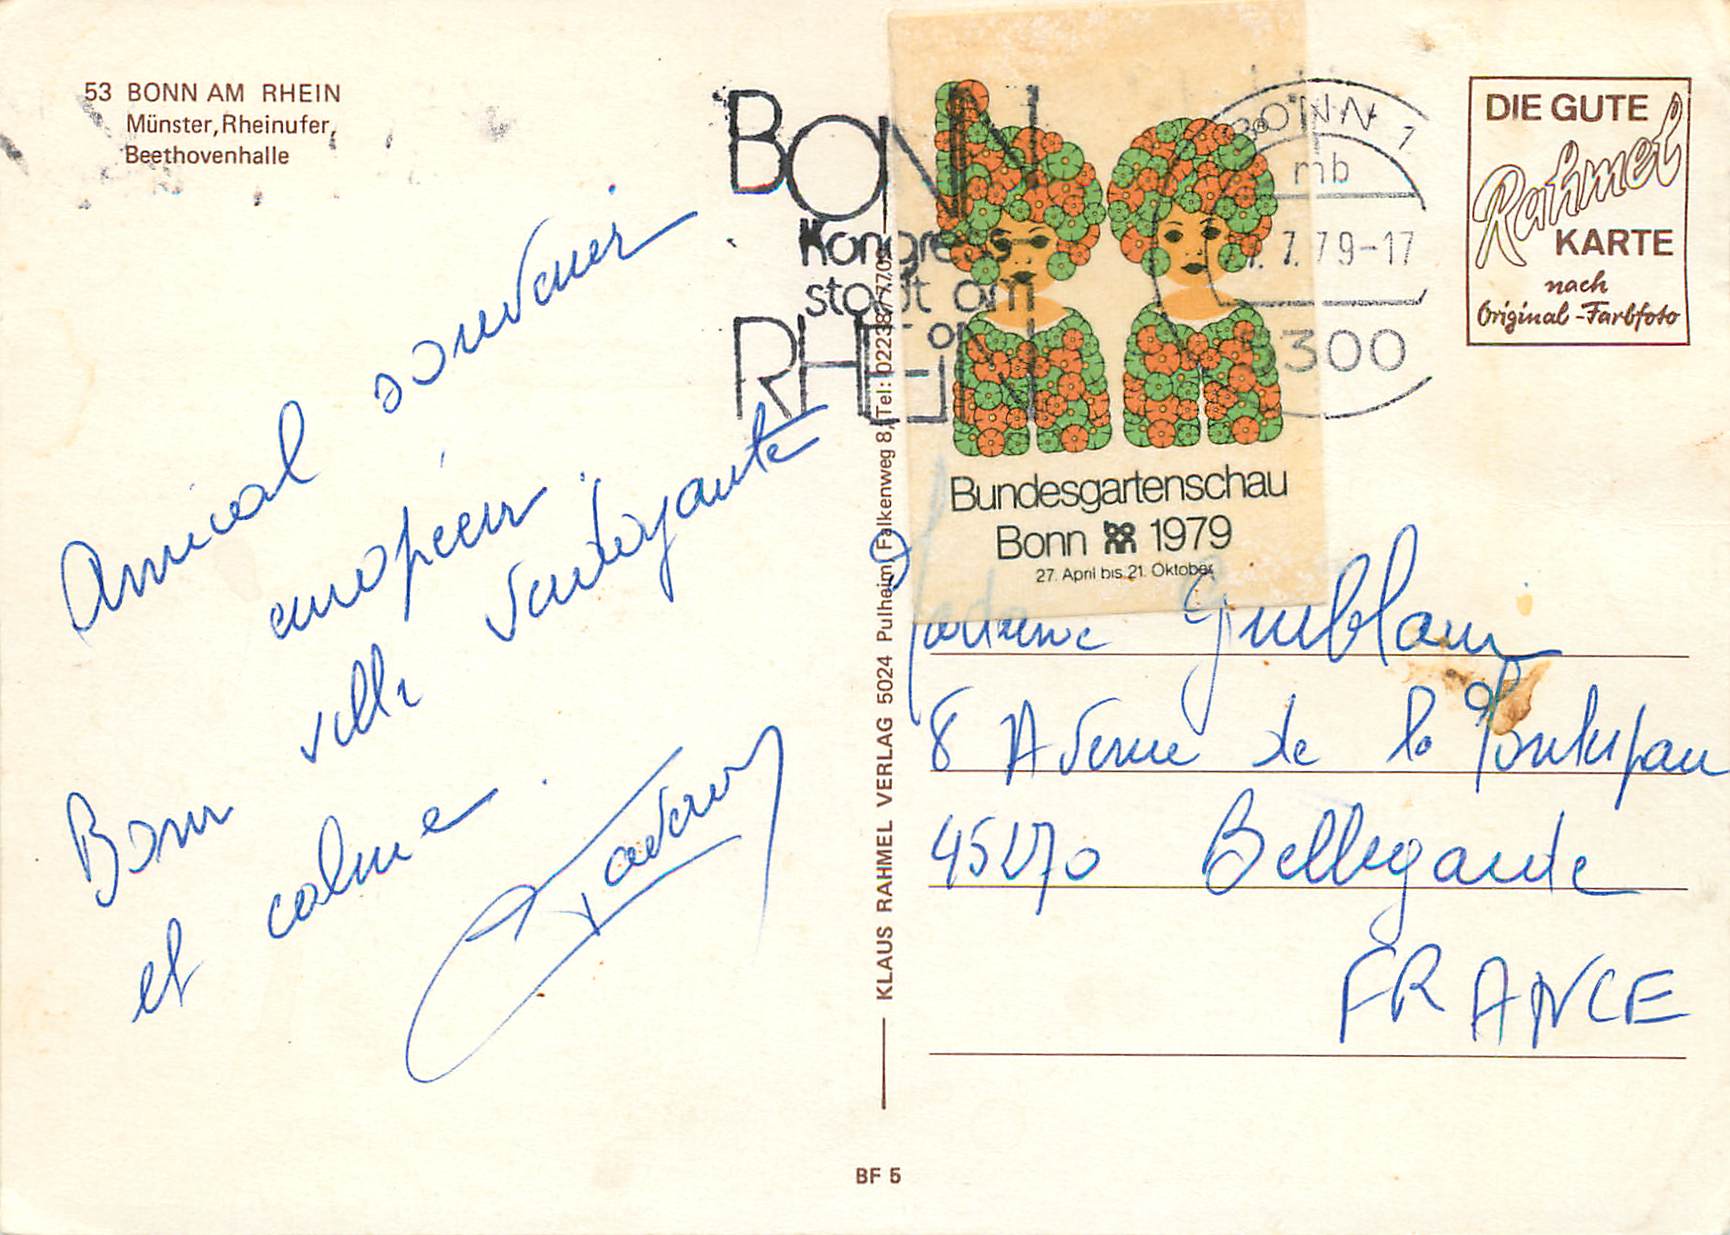 53 BONN AM RHEIN
Münster, Rheinufer,
Beethovenhalle
Amical souvenir
européen.
Bonn ville verdoyante
et calme.
BONN
Kongress
stadt am
RHEIN
BONN 1
mb
7.79-17
5300
Bundesgartenschau
Bonn 1979
27. April bis 21. Oktober
DIE GUTE
Rahmel
KARTE
nach
Original-Farbfoto
KLAUS RAHMEL VERLAG 5024 Pulheim, Falkenweg 8, Tel: 02238/7709
Madame
8 Avenue de la
45270 Bellegarde
FRANCE
BF 5